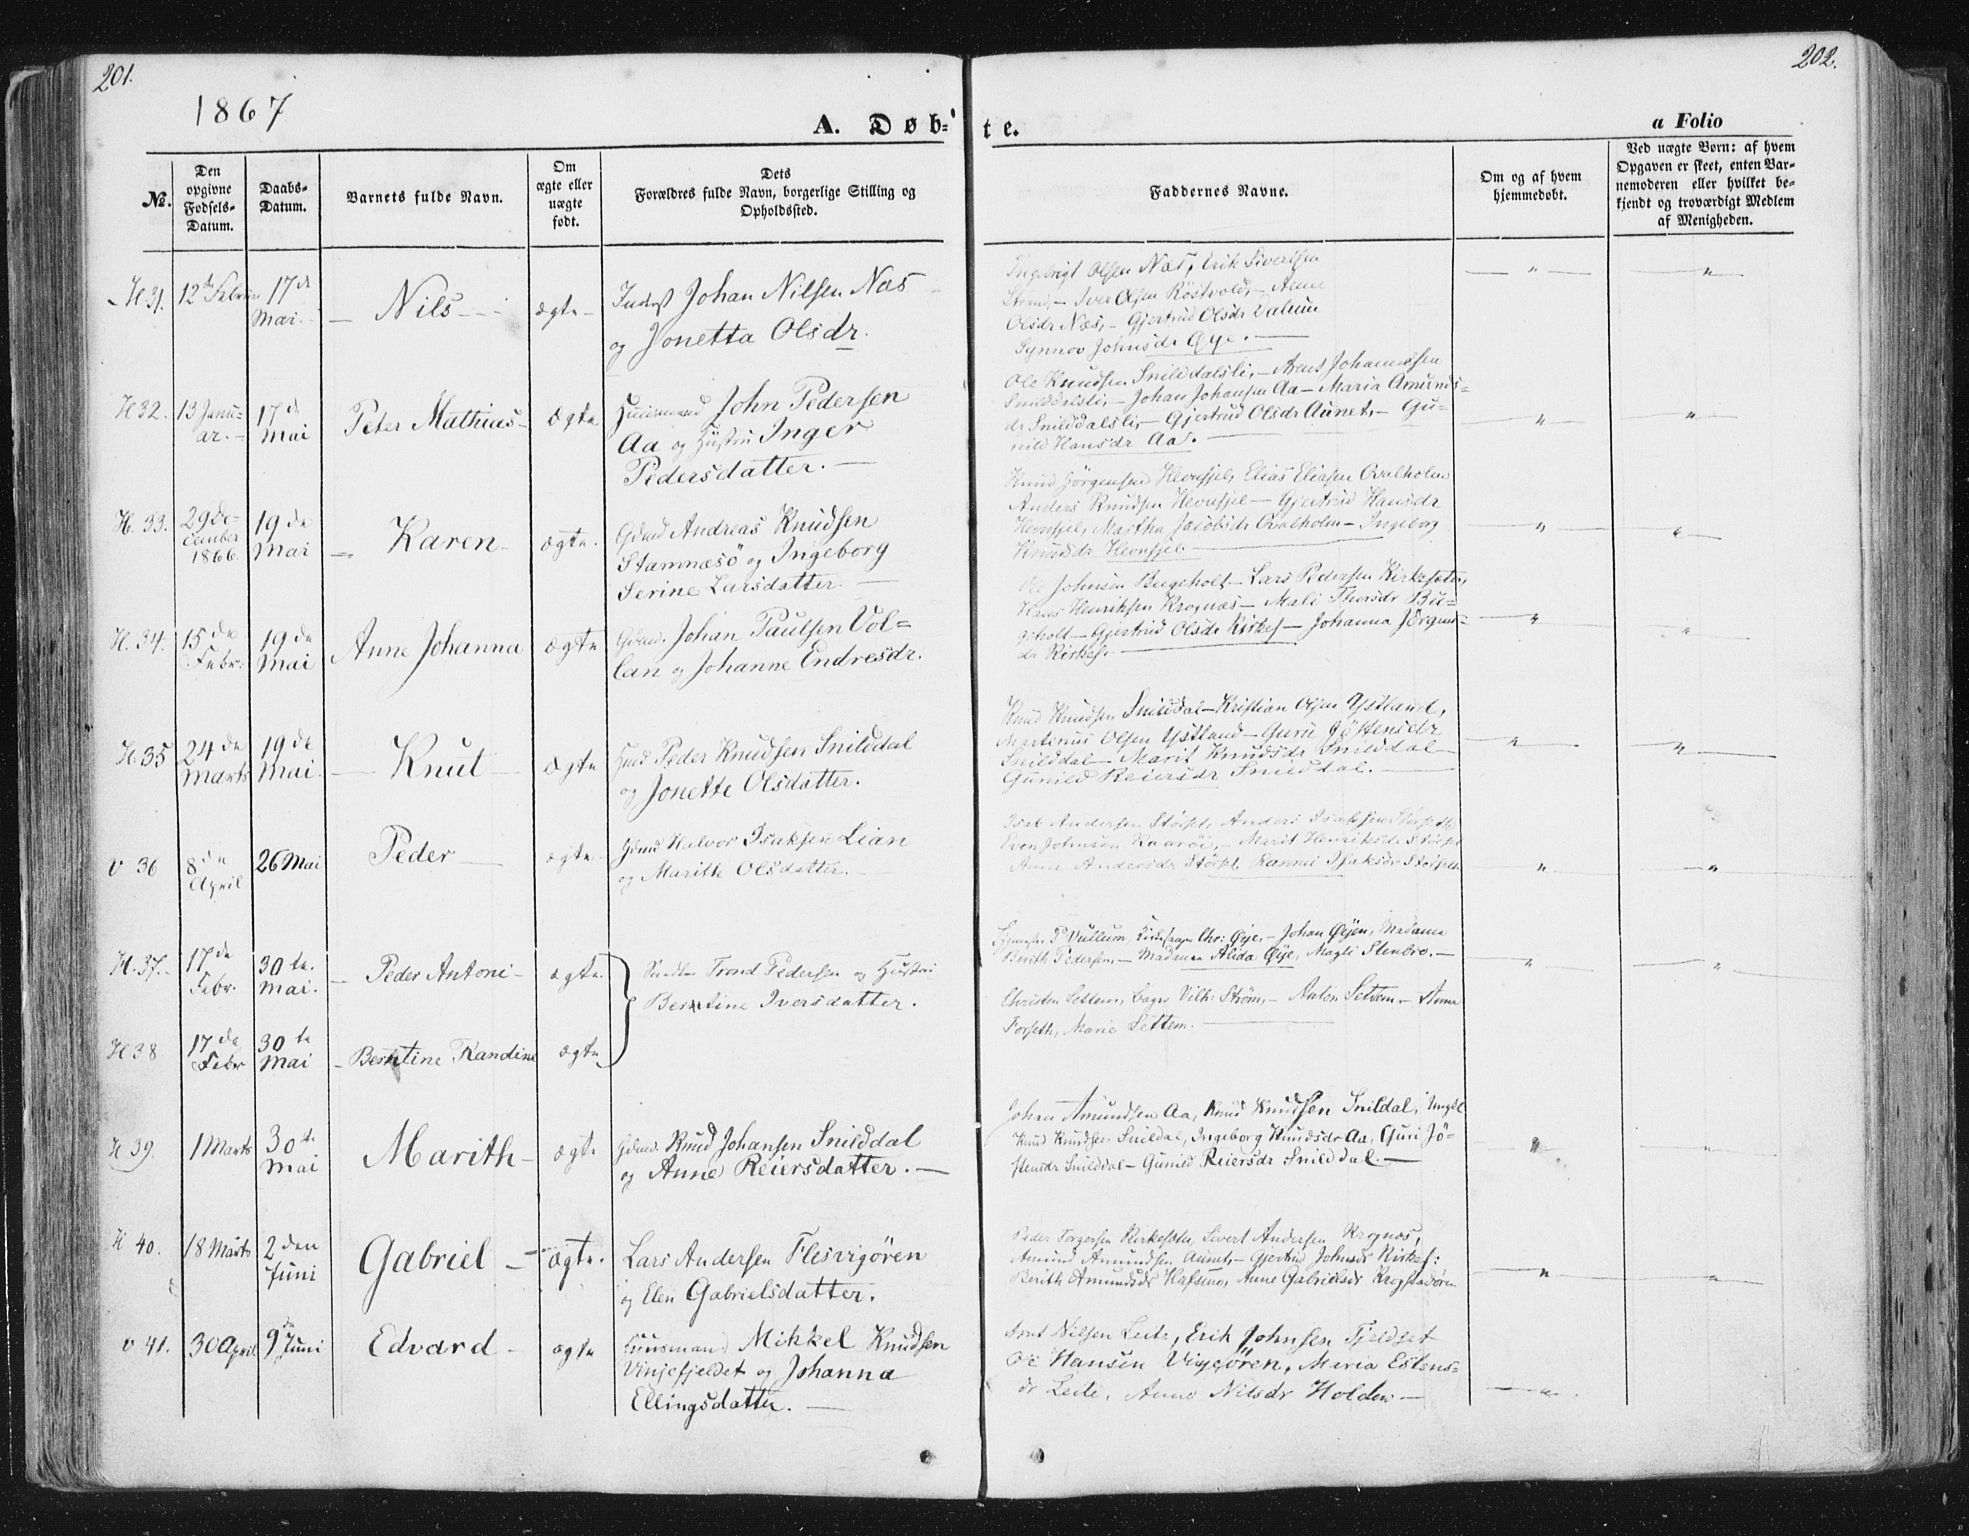 201.
202.
1867
A. Døb-
te.
a Folio
No.
Den opgivne Fødsels-Datum.
Daabs-Datum.
Barnets fulde Navn.
Om ægte eller uægte født.
Dets Forældres fulde Navn, borgerlige Stilling og Opholdssted.
Faddernes Navne.
Om og af hvem hjemmedøbt.
Ved uægte Børn: af hvem Opgaven er skeet, enten Barnemoderen eller hvilket bekjendt og troværdigt Medlem af Menigheden.
H 31. 12te Februar 17de Mai. — Nils — ægte Inderst Johan Nilsen Næs
og Jonetta Olsdr.
Ingebrigt Olsen Næs, Erik Sivertsen
Strand, — Iver Olsen Röstvold, — Anne
Olsdr Næs, — Gjertrud Olsdr Dalum
Synnov Johnsdr Øye. —
H 32. 13 Janu-
ar. — 17de Mai Peter Mathias — ægte Huusmand John Pedersen
Aa og Hustru Inger
Pedersdatter. —
Ole Knudsen Snilddalsli, — Arnt Johannssen
Snilddalsli, — Johan Johansen Aa — Maria Amunds-
dr Snilddalsli, — Gjertrud Olsdr Aunet, — Gu-
nild Hansdr Aa. —
H. 33. 29 De-
cember
1866. 19de Mai — Karen — ægte. Gdmd Andreas Knudsen
Stamnæsö og Ingeborg
Serine Larsdatter. —
Knud Jörgensen Hevnsjel, Elias Eliasen Ovalholm
Anders Knudsen Hevnsjel — Gjertrud Hansdr
Hevnsjel, Martha Jacobsdr Ovalholm — Ingeborg
Knudsdr Hevnsjel —
H. 34. 15de Febr. 19de Mai Anne Johanna ægte Gdmd. Johan Paulsen Vol-
lan og Johanne Endresdr.
Ole Johnsen Bugeholt — Lars Pedersen Kirkesæter,
Hans Henriksen Krognæs — Mali Thorsdr Bu-
geholt — Gjertrud Olsdr Kirkes. — Johanna Jörgens-
dr Kirkes. —
H. 35 24de Marts 19de Mai. — Knut — ægte Gmd Peder Knudsen Snilddal
og Jonette Olsdatter.
Knud Knudsen Snilddal — Kristian Olsen Ystland,
Martinus Olsen Ystland — Guru Jöstensdr
Snilddal — Marit Knudsdr Snilddal —
Gunild Reiersdr Snilddal. —
V 36 8de April 26 Mai Peder — ægte. Gdmd Halvor Isaksen Lian
og Marith Olsdatter. —
Isak Andersen Störset, Anders Isaksen Störseth
Even Johnsen Kaaröi, — Marit Henriksdr Störset
Anne Andersdr Störset, Rannei Isaksdr Störseth
H. 37. — 17de Febr. 30te Mai. — Peder Antoni — ægte. Trond Pedersen og Hustru
Berntine Iversdatter.
P Vullum, Kirkesanger Chr: Øye, — Johan Øyen, Madame
Berith Pedersen, — Madame Alida Øye, Magli Stenbro. —
Christen Settem, Vilh: Ström, — Anton Settem — Anna
Forseth, Marie Settem. —
H 38 17de Febr 30te Mai — Berntine Randine ægte
H 39. 1 Marts 30te Mai Marith — ægte Gdmd. Knud Johansen Snilddal
og Anne Reiersdatter. —
Johan Amundsen Aa, Knud Knudsen Snildal, Ungkl
Knud Knudsen Snildal, Ingeborg Knudsdr Aa, Guri Jö-
stensdr Snilddal — Gunild Reiersdr Snilddal. —
H 40. 18 Marts 2den Juni Gabriel — ægte. Lars Andersen Flesvigören
og Elen Gabrielsdatter.
Peder Torgersen Kirkesæter, Sivert Andersen Krognæs,
Amund Amundsen Aunet, — Gjertrud Johnsdr Kirkes:
Berith Amundsdr Hafsmo, Anne Gabrielsdr Krogstadören
V 41. 30 April 9de Juni Edvard — ægte Huusmand Mikkel Knudsen
Vinjefjeldet og Johanna
Ellingsdatter. —
Arnt Nilsen Leite, Erik Johnsen Fjeldset
Ole Hansen Vigesören, Maria Estens-
dr Leite, Anne Nilsdr Holden —